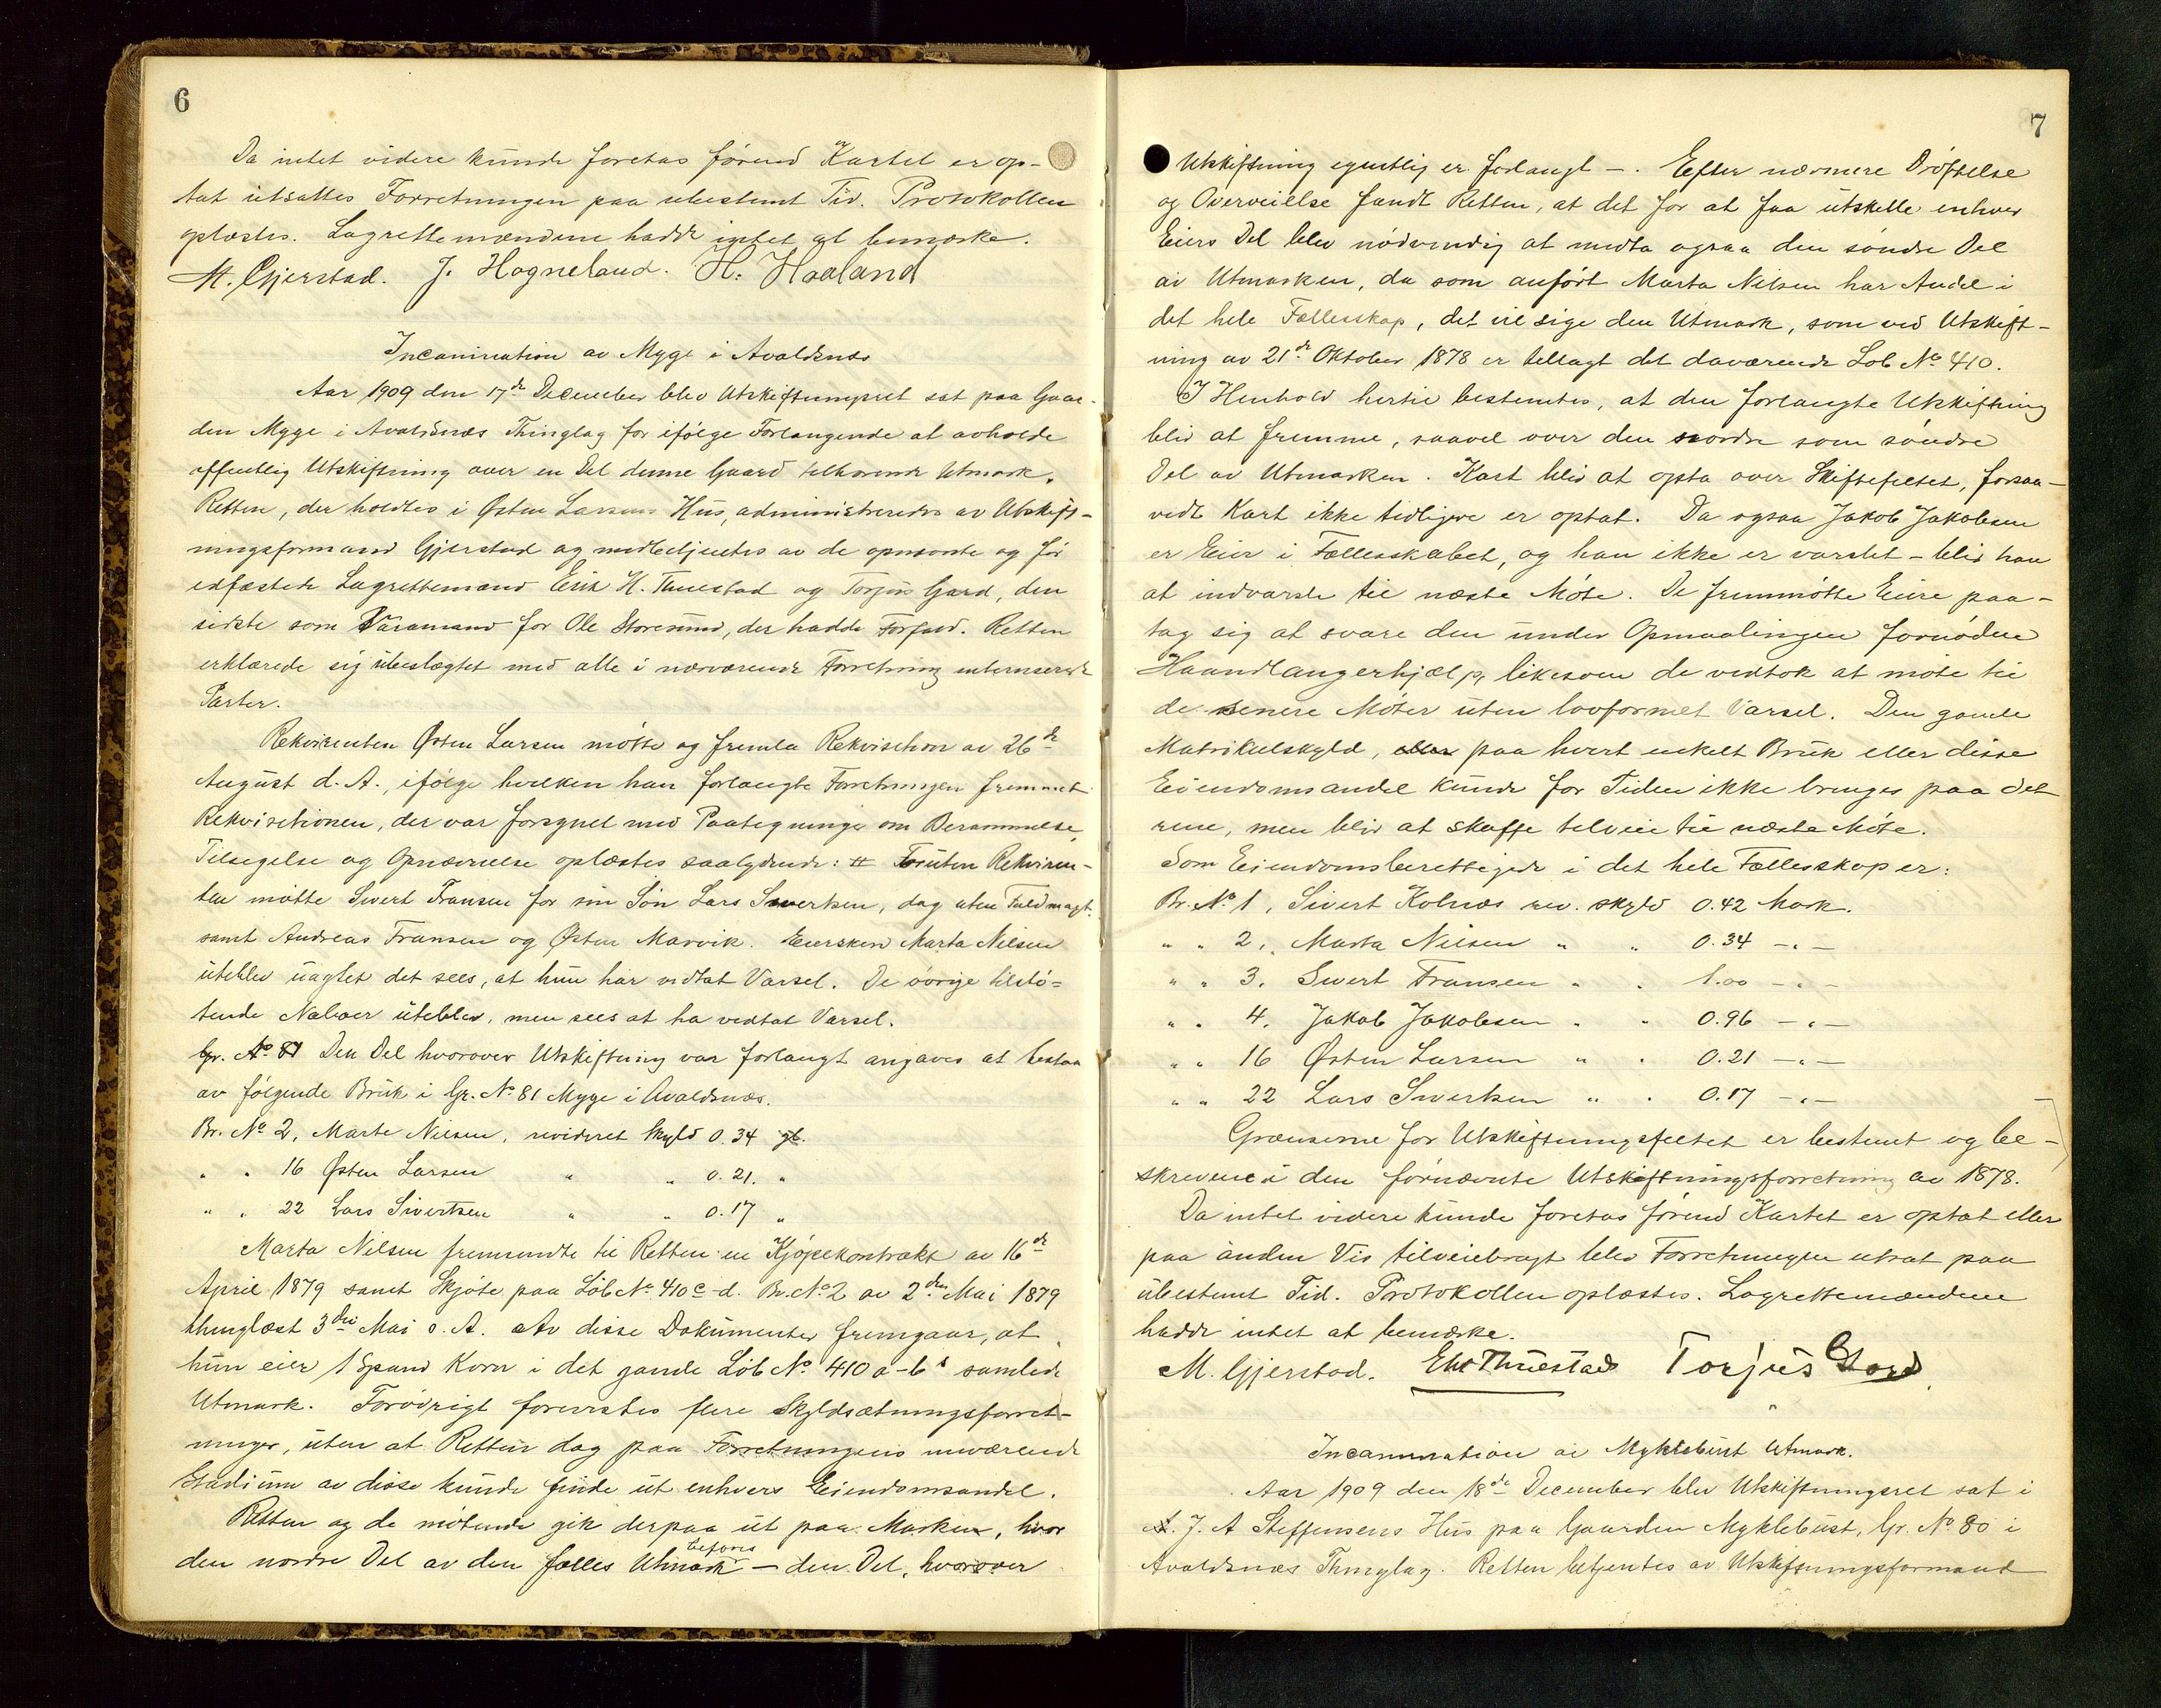 6
Da intet videre kunde foretas førend Kartet er op-
tat utsattes Forretningen paa ubestemt Tid. Protokollen
oplæstes. Lagrettemændene hadde intet at bemærke.
M. Gjerstad. J. Hogneland. H. Haaland
Incamination av Myge i Avaldsnæs
Aar 1909 den 17de December blev Utskiftningsret sat paa Gaar-
den Myge i Avaldsnæs Thinglag for ifølge Forlangende at avholde
offentlig Utskiftning over en Del denne Gaard tilhørende Utmark.
Retten, der holdtes i Østen Larsens Hus, administreredes av Utskift-
ningsformand Gjerstad og medbetjentes av de opnævnte og før
edfæstede Lagrettemænd Erik H. Thuestad og Torjus Gard, den
sidste som Varamand for Ole Storesund, der hadde Forfald. Retten
erklærede sig ubeslægtet med alle i nærværende Forretning interesserede
Parter.
Rekvirenten Østen Larsen møtte og fremla Rekvisition av 26de
August d. A., ifølge hvilken han forlangte Forretningen fremmet
Rekvisitionen, der var forsynet med Paategninger om Berammelse,
Tilsigelse og Opnævnelse oplæstes saalydende: # Foruten Rekviren-
ten møtte Sivert Fransen for sin Søn Lars Sivertsen, dog uten Fuldmagt,
samt Andreas Fransen og Østen Marvik. Eiersken Marta Nilsen
uteblev uagtet det sees, at hun har vedtat Varsel. De øvrige tilstø-
tende Naboer uteblev, men sees at ha vedtat Varsel.
Gr. No 81 Den Del hvorover Utskiftning var forlangt angaves at bestaa
av følgende Bruk i Gr. No 81 Myge i Avaldsnæs.
Br. No 2, Marte Nilsen, revideret Skyld 0.34
" " 16 Østen Larsen " " 0.21. "
" " 22 Lars Sivertsen " " 0.17 "
Marta Nilsen fremsendte til Retten en Kjøpekontrakt av 16de
April 1879 samt Skjøte paa Løb No 410 c-d. Br. No 2 av 2den Mai 1879
thinglæst 3die Mai s. A. Av disse Dokumenter fremgaar, at
hun eier 1 Spand Korn i det gamle Løb No 410 a-b's samlede
Utmark. Forøvrigt forevistes flere Skyldsætningsforret-
ninger, uten at Retten dog paa Forretningens nuværende
Stadium av disse kunde finde ut enhvers Eiendomsandel.
Retten og de møtende gik derpaa ut paa Marken, hvor
den nordre Del av den fælles Utmark befores — den Del, hvorover
7
Utskiftning egentlig er forlangt —. Efter nærmere Drøftelse
og Overveielse fandt Retten, at det for at faa utskille enhver
Eiers Del blev nødvendig at medta ogsaa den søndre Del
av Utmarken, da som anført Marta Nilsen har Andel i
det hele Fællesskap, det vil sige den Utmark, som ved Utskift-
ning av 21de Oktober 1878 er tillagt det daværende Løb No 410.
I Henhold hertil bestemtes, at den forlangte Utskiftning
blir at fremme, saavel over den nordre som søndre
Del av Utmarken. Kart blir at opta over Skiftefeltet, forsaa-
vidt Kart ikke tidligere er optat. Da ogsaa Jakob Jakobsen
er Eier i Fællesskabet, og han ikke er varslet – blir han
at indvarsle til næste Møte. De fremmøtte Eiere paa-
tog sig at svare den under Opmaalingen fornødne
Haandlangerhjælp, likesom de vedtok at møte til
de senere Møter uten lovformet Varsel. Den gamle
Matrikulskyld, paa hvert enkelt Bruk eller disse
Eiendomsandel kunde for Tiden ikke bringes paa det
rene, men blir at skaffe tilveie til næste Møte.
Som Eiendomsberettigede i det hele Fællesskap er:
Br. No 1, Sivert Kolnæs rev. skyld 0.42 Mark.
" " 2, Marta Nilsen " " 0.34 —"—
" " 3. Sivert Fransen " " 1.00 —"—
" " 4. Jakob Jakobsen " " 0.96 —"—
" " 16 Østen Larsen " " 0.21 —"—
" " 22 Lars Sivertsen " " 0.17 —"—
Grænserne for Utskiftningsfeltet er bestemt og be-
skrevene i den førnævnte Utskiftningsforretning av 1878.
Da intet videre kunde foretas førend Kartet er optat eller
paa anden Vis tilveiebragt blev Forretningen utsat paa
ubestemt Tid. Protokollen oplæstes. Lagrettemændene
hadde intet at bemærke.
M. Gjerstad. EHThuestad Torjus Gard
Incamination av Myklebust Utmark.
Aar 1909 den 18de December blev Utskiftningsret sat i
J. A Steffensens Hus paa Gaarden Myklebust, Gr. No 80 i
Avaldsnæs Thinglag. Retten betjentes av Utskiftningsformand